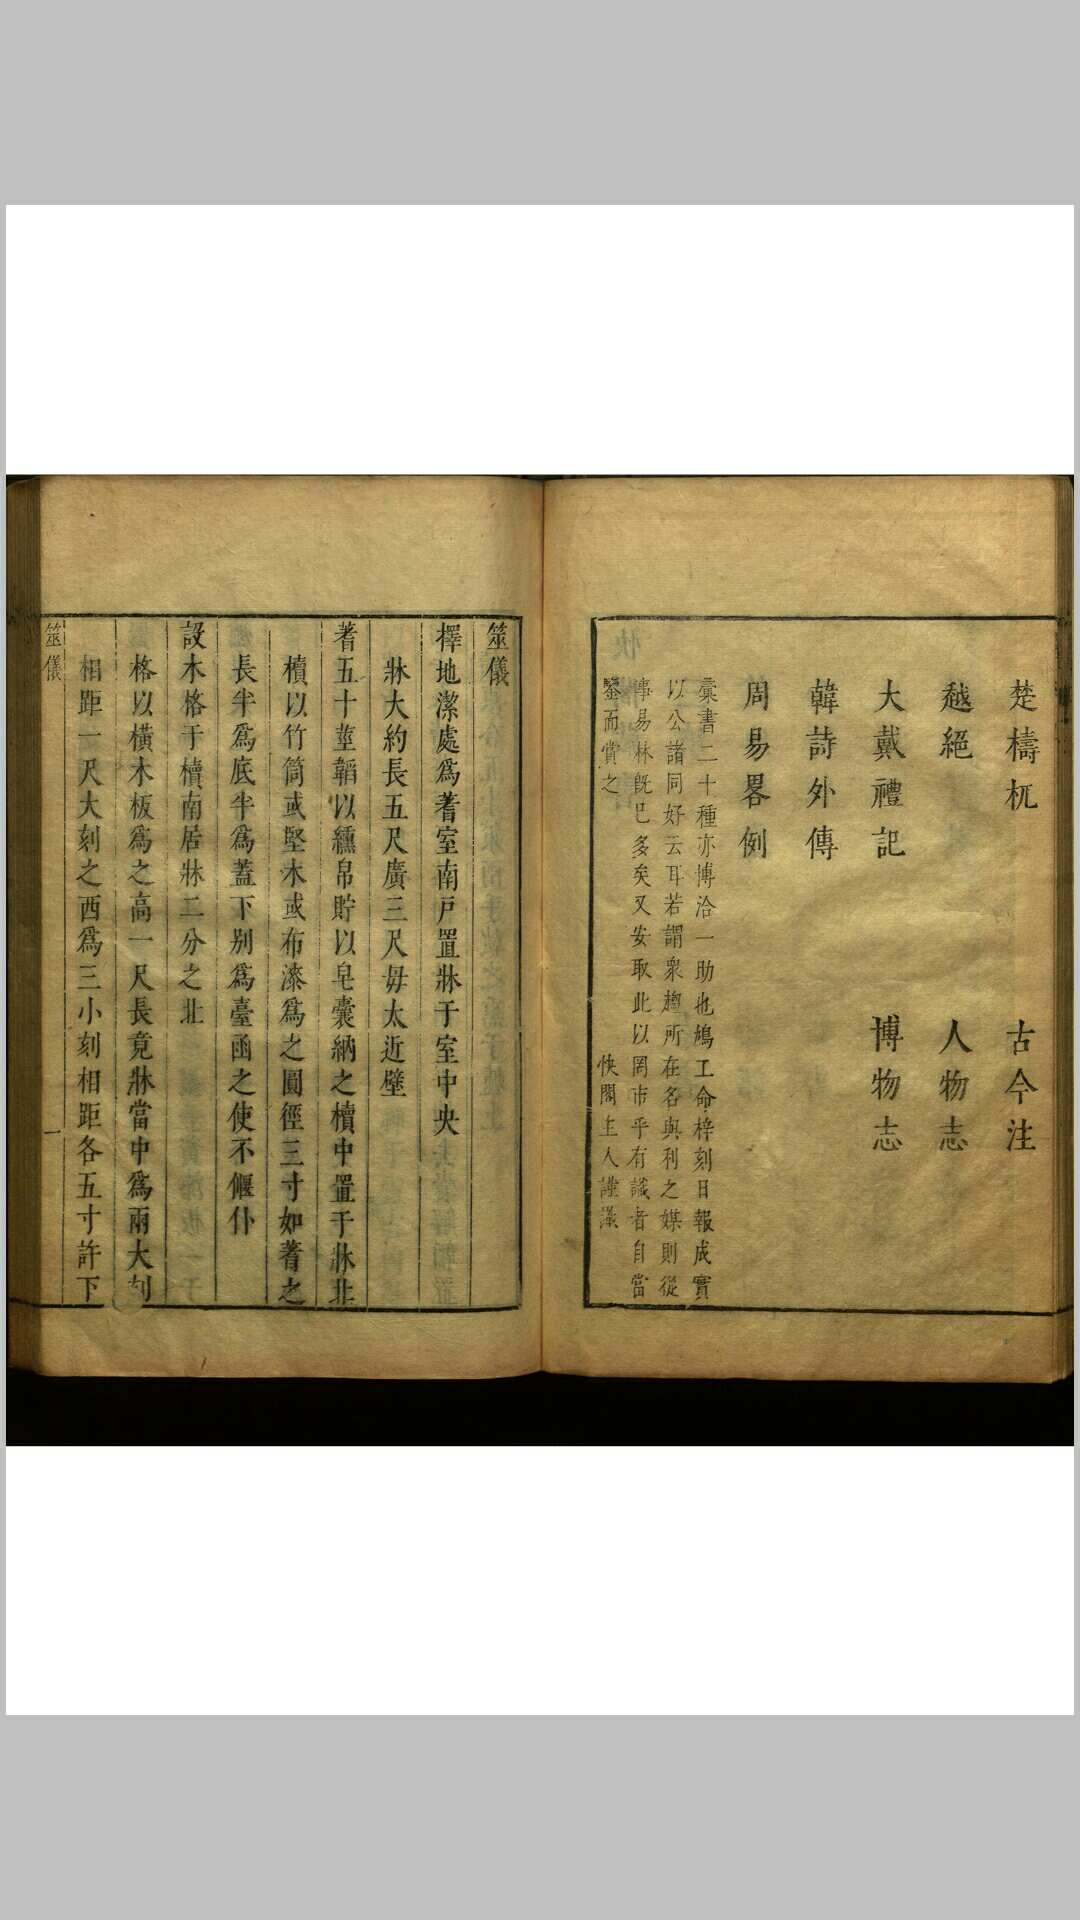 楚檮杌　古今注
越絕　人物志
大戴禮記　博物志
韓詩外傳
周易畧例
彙書二十種亦博洽一助也鳩工命梓刻日報成實
以公諸同好云耳若謂衆趨所在名與利之媒則從
事易林旣已多矣又安取此以罔市乎有識者自當
鑒而賞之　快閣主人謹識
筮儀
擇地潔處爲蓍室南戶置牀于室中央
牀大約長五尺廣三尺毋太近壁
蓍五十莖韜以纁帛貯以皂囊納之櫝中置于牀北
櫝以竹筒或堅木或布漆爲之圓徑三寸如蓍之
長半爲底半爲蓋下別爲臺函之使不偃仆
設木格于櫝南居牀二分之北
格以橫木板爲之高一尺長竟牀當中爲兩大刻
相距一尺大刻之西爲三小刻相距各五寸許下
筮儀　一